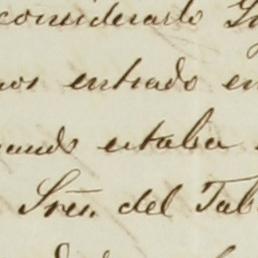 considerarlo
mos entrado en
uando estaba
Sres. del Tab